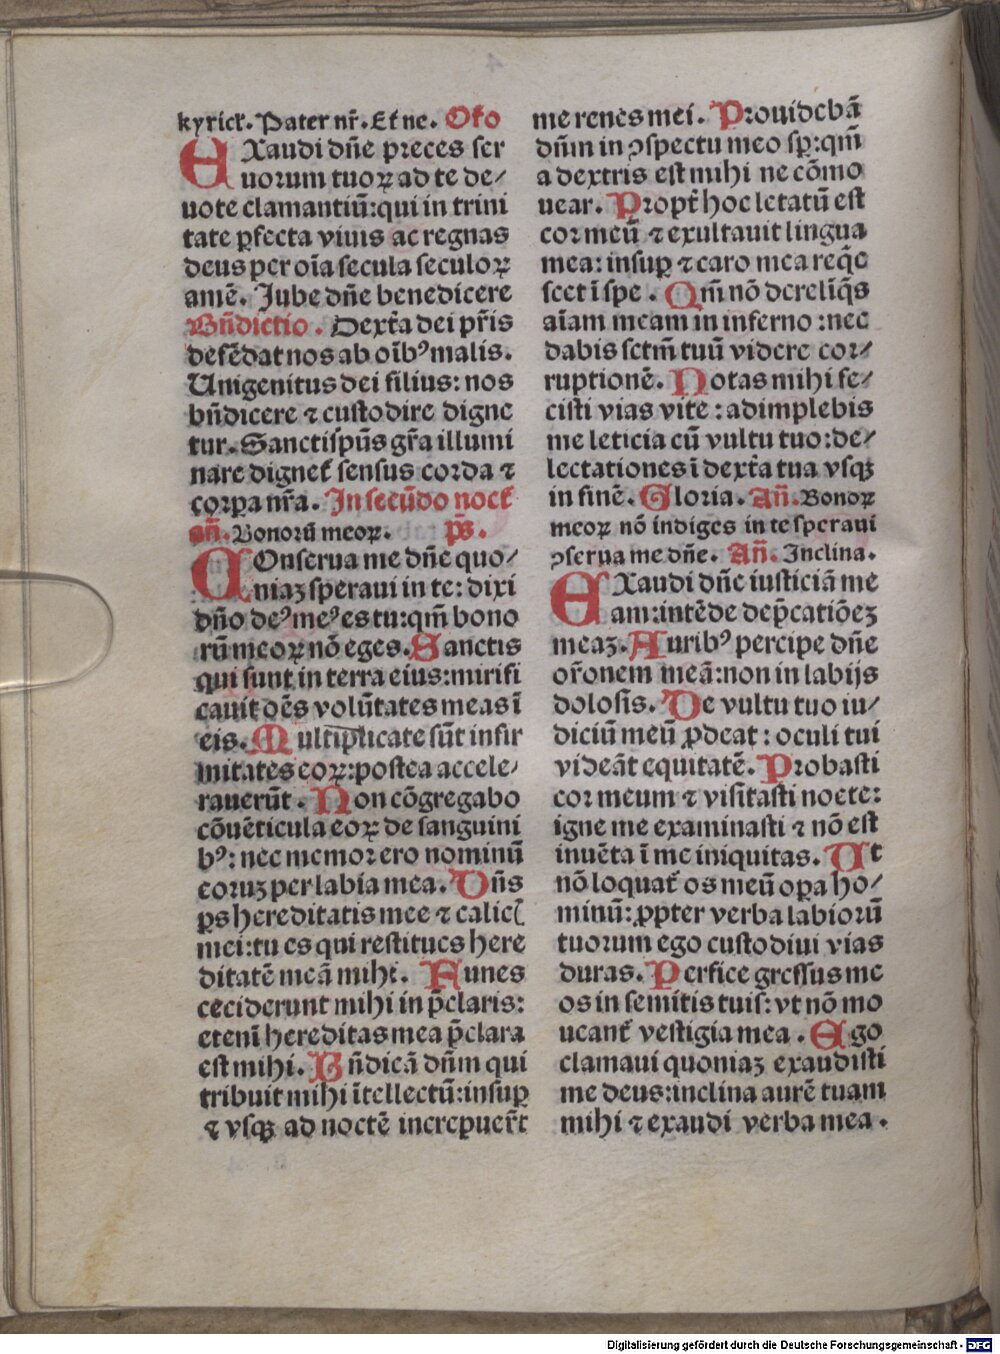 kyriel̃. Pater nr̃. Et ne. Or̃o
EXaudi dñe preces ser
uorum tuoꝝ ad te de/
uote clamantiũ: qui in trini
tate ꝑfecta viuis ac regnas
deus per oĩa secula seculoꝝ
amẽ. Jube dñe benedicere
Bñdictio. Dext̃a dei pr̃is
defẽdat nos ab oĩbꝰ malis.
Unigenitus dei filius: nos
bñdicere ⁊ custodire digne
tur. Sanctispũs gr̃a illumi
nare dignet̃ sensus corda ⁊
corꝑa nr̃a. In secũdo noct̃
añ. Bonorũ meoꝝ. p̃s.
COnserua me dñe quo/
niaꝫ speraui in te: dixi
dño deꝰ meꝰ es tu: qm̃ bono
rũ meoꝝ nõ eges. Sanctis
qui sunt in terra eius: mirifi
cauit oẽs volũtates meas ĩ
eis. Multiplicate sũt infir
mitates eoꝝ: postea accele/
rauerũt. Non cõgregabo
cõuẽticula eoꝝ de sanguini
bꝰ: nec memor ero nominũ
eoruꝫ per labia mea. Dñs
ꝑs hereditatis mee ⁊ calicꝭ
mei: tu es qui restitues here
ditatẽ meã mihi. Funes
ceciderunt mihi in p̃claris:
etenĩ hereditas mea p̃clara
est mihi. Bñdicã dñm qui
tribuit mihi ĩtellectũ: insuꝑ
⁊ vsqꝫ ad noctẽ increpuer̃t
me renes mei. Prouidebã
dñm in ꝯspectu meo sp̃: qm̃
a dextris est mihi ne cõmo
uear. Propt̃ hoc letatũ est
cor meũ ⁊ exultauit lingua
mea: insuꝑ ⁊ caro mea reqẽ
scet ĩ spe. Qm̃ nõ derelĩq̃s
aĩam meam in inferno: nec
dabis sctm̃ tuũ videre cor/
ruptionẽ. Notas mihi fe/
cisti vias vite: adimplebis
me leticia cũ vultu tuo: de/
lectationes ĩ dext̃a tua vsqꝫ
in finẽ. Gloria. Añ. Bonoꝝ
meoꝝ nõ indiges in te speraui
ꝯserua me dñe. Añ. Inclina.
EXaudi dñe iusticiã me
am: intẽde dep̃catiõeꝫ
meaꝫ. Auribꝰ percipe dñe
or̃onem meã: non in labijs
dolosis. De vultu tuo iu/
diciũ meũ ꝓdeat: oculi tui
videãt equitatẽ. Probasti
cor meum ⁊ visĩtasti nocte:
igne me examinasti ⁊ nõ est
inuẽta ĩ me iniquitas. Ut
nõ loquat̃ os meũ oꝑa ho/
minũ: ꝓpter verba labiorũ
tuorum ego custodiui vias
duras. Perfice gressus me
os in semitis tuis: vt nõ mo
ueant̃ vestigia mea. Ego
clamaui quoniaꝫ exaudisti
me deus: inclina aurẽ tuam
mihi ⁊ exaudi verba mea.
Digitalisierung gefördert durch die Deutsche Forschungsgemeinschaft - DFG